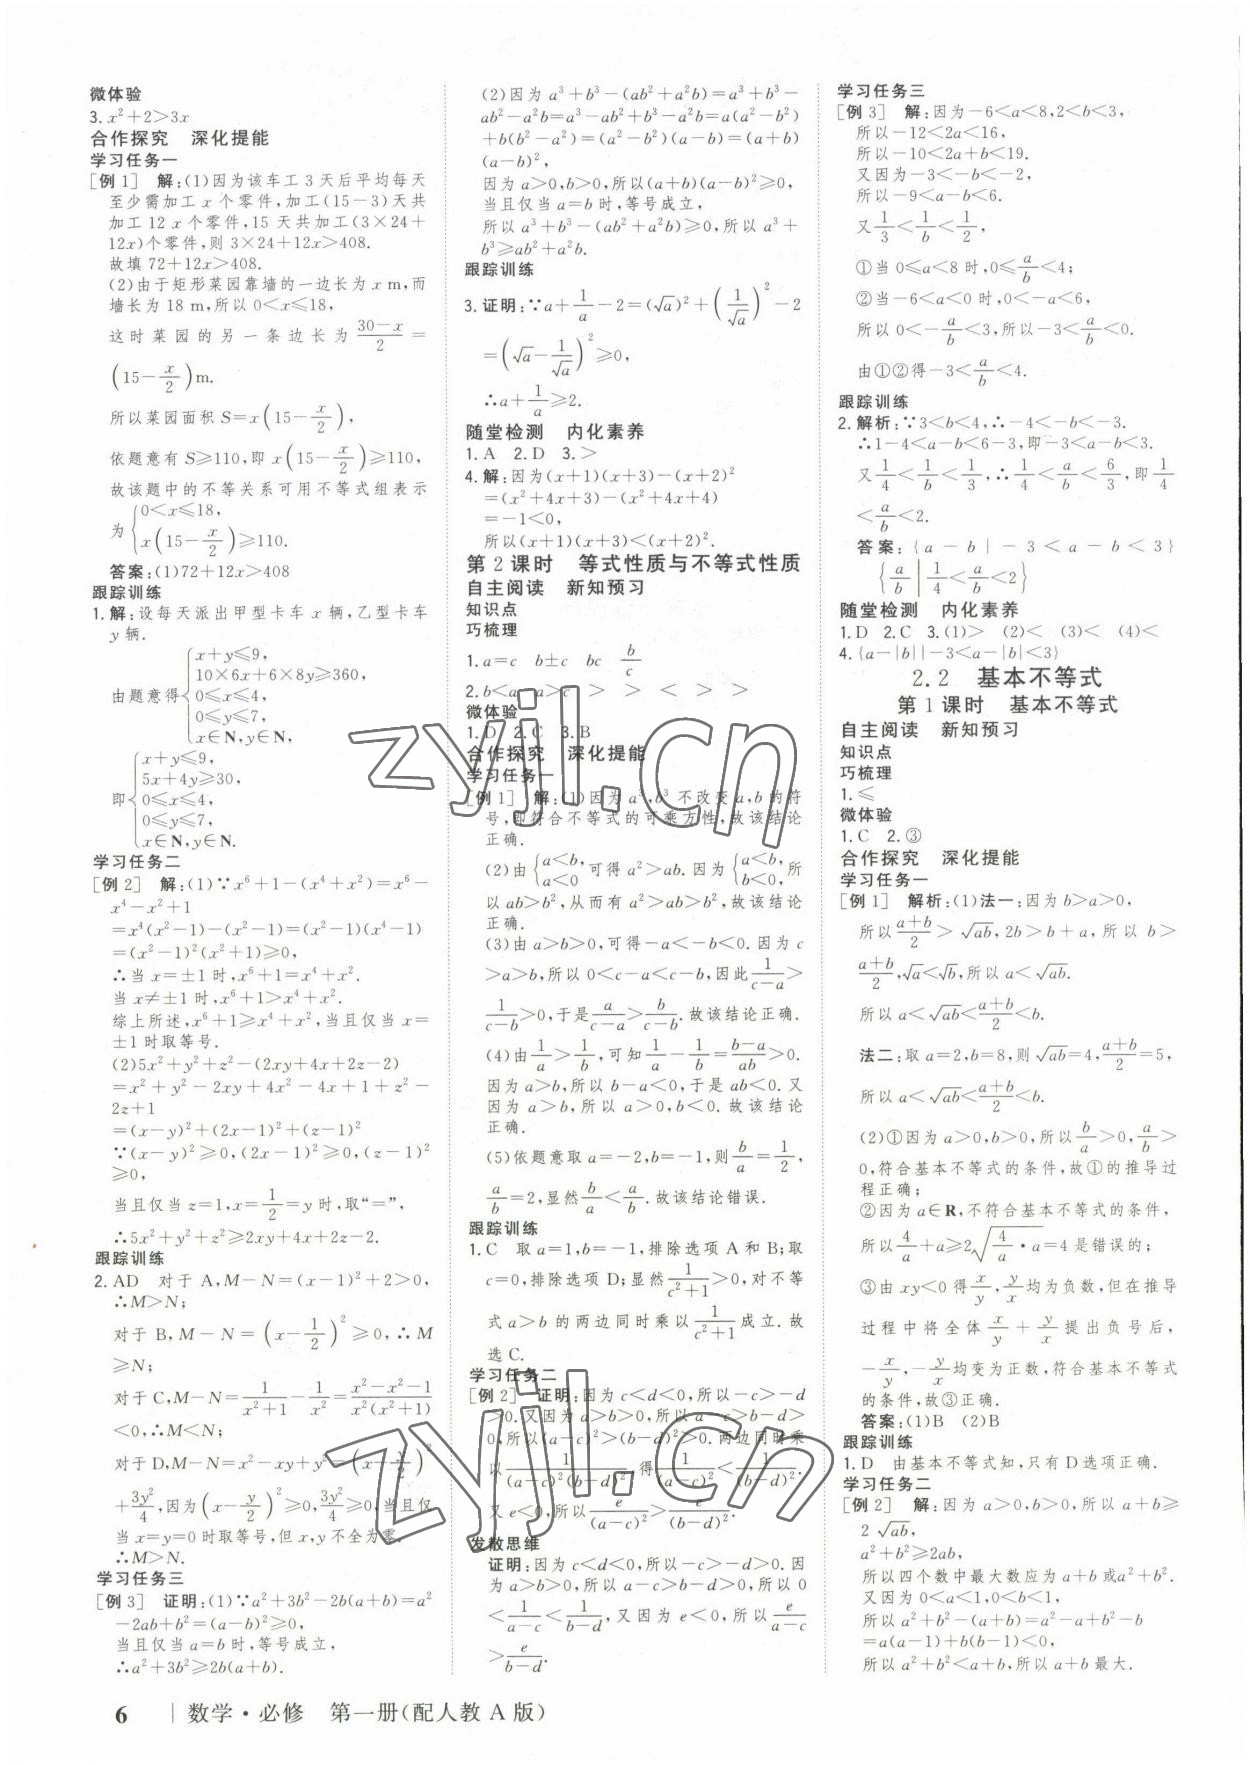 微体验
3. x²+2>3x
合作探究　深化提能
学习任务一
[例 1]　解:(1)因为该车工 3 天后平均每天
至少需加工 x 个零件,加工(15-3)天共
加工 12 x 个零件,15 天共加工(3×24+
12x)个零件,则 3×24+12x>408.
故填 72+12x>408.
(2)由于矩形菜园靠墙的一边长为 x m,而
墙长为 18 m,所以 0<x≤18,
这时菜园的另一条边长为 (30-x)/2 =
(15-x/2)m.
所以菜园面积 S=x(15-x/2),
依题意有 S≥110,即 x(15-x/2)≥110,
故该题中的不等关系可用不等式组表示
为 { 0<x≤18,
x(15-x/2)≥110.
答案:(1)72+12x>408
跟踪训练
1. 解:设每天派出甲型卡车 x 辆,乙型卡车
y 辆.
由题意得 { x+y≤9,
10×6x+6×8y≥360,
0≤x≤4,
0≤y≤7,
x∈N,y∈N,
即 { x+y≤9,
5x+4y≥30,
0≤x≤4,
0≤y≤7,
x∈N,y∈N.
学习任务二
[例 2]　解:(1)∵x⁶+1-(x⁴+x²)=x⁶-
x⁴-x²+1
=x⁴(x²-1)-(x²-1)=(x²-1)(x⁴-1)
=(x²-1)²(x²+1)≥0,
∴当 x=±1 时,x⁶+1=x⁴+x².
当 x≠±1 时,x⁶+1>x⁴+x².
综上所述,x⁶+1≥x⁴+x²,当且仅当 x=
±1 时取等号.
(2)5x²+y²+z²-(2xy+4x+2z-2)
=x²+y²-2xy+4x²-4x+1+z²-
2z+1
=(x-y)²+(2x-1)²+(z-1)²
∵(x-y)²≥0,(2x-1)²≥0,(z-1)²
≥0,
当且仅当 z=1,x=1/2=y 时,取“=”,
∴5x²+y²+z²≥2xy+4x+2z-2.
跟踪训练
2. AD　对于 A,M-N=(x-1)²+2>0,
∴M>N;
对于 B,M-N=(x-1/2)²≥0,∴M
≥N;
对于 C,M-N=1/(x²+1)-1/x²=(x²-x²-1)/(x²(x²+1))
<0,∴M<N;
对于 D,M-N=x²-xy+y²=(x-y/2)²
+3y²/4,因为(x-y/2)²≥0,3y²/4≥0,当且仅
当 x=y=0 时取等号,但 x,y 不全为零,
∴M>N.
学习任务三
[例 3]　证明:(1)∵a²+3b²-2b(a+b)=a²
-2ab+b²=(a-b)²≥0,
当且仅当 a=b 时,等号成立,
∴a²+3b²≥2b(a+b).
(2)因为 a³+b³-(ab²+a²b)=a³+b³-
ab²-a²b=a³-ab²+b³-a²b=a(a²-b²)
+b(b²-a²)=(a²-b²)(a-b)=(a+b)
(a-b)²,
因为 a>0,b>0,所以(a+b)(a-b)²≥0,
当且仅当 a=b 时,等号成立,
所以 a³+b³-(ab²+a²b)≥0,所以 a³+
b³≥ab²+a²b.
跟踪训练
3. 证明:∵a+1/a-2=(√a)²+(1/√a)²-2
=(√a-1/√a)²≥0,
∴a+1/a≥2.
随堂检测　内化素养
1. A　2. D　3. >
4. 解:因为(x+1)(x+3)-(x+2)²
=(x²+4x+3)-(x²+4x+4)
=-1<0,
所以(x+1)(x+3)<(x+2)².
第 2 课时　等式性质与不等式性质
自主阅读　新知预习
知识点
巧梳理
1. a=c　b±c　bc　b/c
2. b<a　a>c　>　>　>　>　>
微体验
1. D　2. C　3. B
合作探究　深化提能
学习任务一
[例 1]　解:(1)因为 a³,b³ 不改变 a,b 的符
号,即符合不等式的可乘方性,故该结论
正确.
(2)由 { a<b, a<0 可得 a²>ab. 因为 { a<b, b<0, 所
以 ab>b²,从而有 a²>ab>b²,故该结论
正确.
(3)由 a>b>0,可得-a<-b<0. 因为 c
>a>b,所以 0<c-a<c-b,因此 1/(c-a)>
1/(c-b)>0,于是 a/(c-a)>b/(c-b). 故该结论正确.
(4)由 1/a>1/b,可知 1/a-1/b=(b-a)/ab>0.
因为 a>b,所以 b-a<0,于是 ab<0. 又
因为 a>b,所以 a>0,b<0. 故该结论
正确.
(5)依题意取 a=-2,b=-1,则 b/a=1/2,
a/b=2,显然 b/a<a/b. 故该结论错误.
跟踪训练
1. C　取 a=1,b=-1,排除选项 A 和 B;取
c=0,排除选项 D;显然 1/(c²+1)>0,对不等
式 a>b 的两边同时乘以 1/(c²+1) 成立. 故
选 C.
学习任务二
[例 2]　证明:因为 c<d<0,所以-c>-d
>0. 又因为 a>b>0,所以 a-c>b-d>
0,所以(a-c)²>(b-d)²>0. 两边同时乘
以 1/((a-c)²(b-d)²) 得 1/(a-c)²<1/(b-d)².
又 e<0,所以 e/(a-c)²>e/(b-d)².
发散思维
证明:因为 c<d<0,所以-c>-d>0. 因
为 a>b>0,所以 a-c>b-d>0,所以 0
<1/(a-c)<1/(b-d),又因为 e<0,所以 e/(a-c)
>e/(b-d).
学习任务三
[例 3]　解:因为-6<a<8,2<b<3,
所以-12<2a<16,
所以-10<2a+b<19.
又因为-3<-b<-2,
所以-9<a-b<6.
又 1/3<1/b<1/2,
①当 0≤a<8 时,0≤a/b<4;
②当-6<a<0 时,0<-a<6,
所以 0<-a/b<3,所以-3<a/b<0.
由①②得-3<a/b<4.
跟踪训练
2. 解析:∵3<b<4,∴-4<-b<-3.
∴1-4<a-b<6-3,即-3<a-b<3.
又 1/4<1/b<1/3,∴1/4<a/b<6/3,即 1/4
<a/b<2.
答案:{a-b|-3<a-b<3}
{a/b|1/4<a/b<2}
随堂检测　内化素养
1. D　2. C　3. (1)>　(2)<　(3)<　(4)<
4. {a-|b||-3<a-|b|<3}
2.2　基本不等式
第 1 课时　基本不等式
自主阅读　新知预习
知识点
巧梳理
1. ≤
微体验
1. C　2. ③
合作探究　深化提能
学习任务一
[例 1]　解析:(1)法一:因为 b>a>0,
所以 (a+b)/2>√ab,2b>b+a,所以 b>
(a+b)/2,√a<√b,所以 a<√ab.
所以 a<√ab<(a+b)/2<b.
法二:取 a=2,b=8,则√ab=4,(a+b)/2=5,
所以 a<√ab<(a+b)/2<b.
(2)①因为 a>0,b>0,所以 b/a>0,a/b>
0,符合基本不等式的条件,故①的推导过
程正确;
②因为 a∈R,不符合基本不等式的条件,
所以 4/a+a≥2√(4/a·a)=4 是错误的;
③由 xy<0 得 x/y,y/x 均为负数,但在推导
过程中将全体 x/y+y/x 提出负号后,
-x/y,-y/x 均变为正数,符合基本不等式
的条件,故③正确.
答案:(1)B　(2)B
跟踪训练
1. D　由基本不等式知,只有 D 选项正确.
学习任务二
[例 2]　解:因为 a>0,b>0,所以 a+b≥
2√ab,
a²+b²≥2ab,
所以四个数中最大数应为 a+b 或 a²+b².
又因为 0<a<1,0<b<1,
所以 a²+b²-(a+b)=a²-a+b²-b
=a(a-1)+b(b-1)<0,
所以 a²+b²<a+b,所以 a+b 最大.
6　数学·必修　第一册(配人教 A 版)
zyjl.cn
zyjl.cn